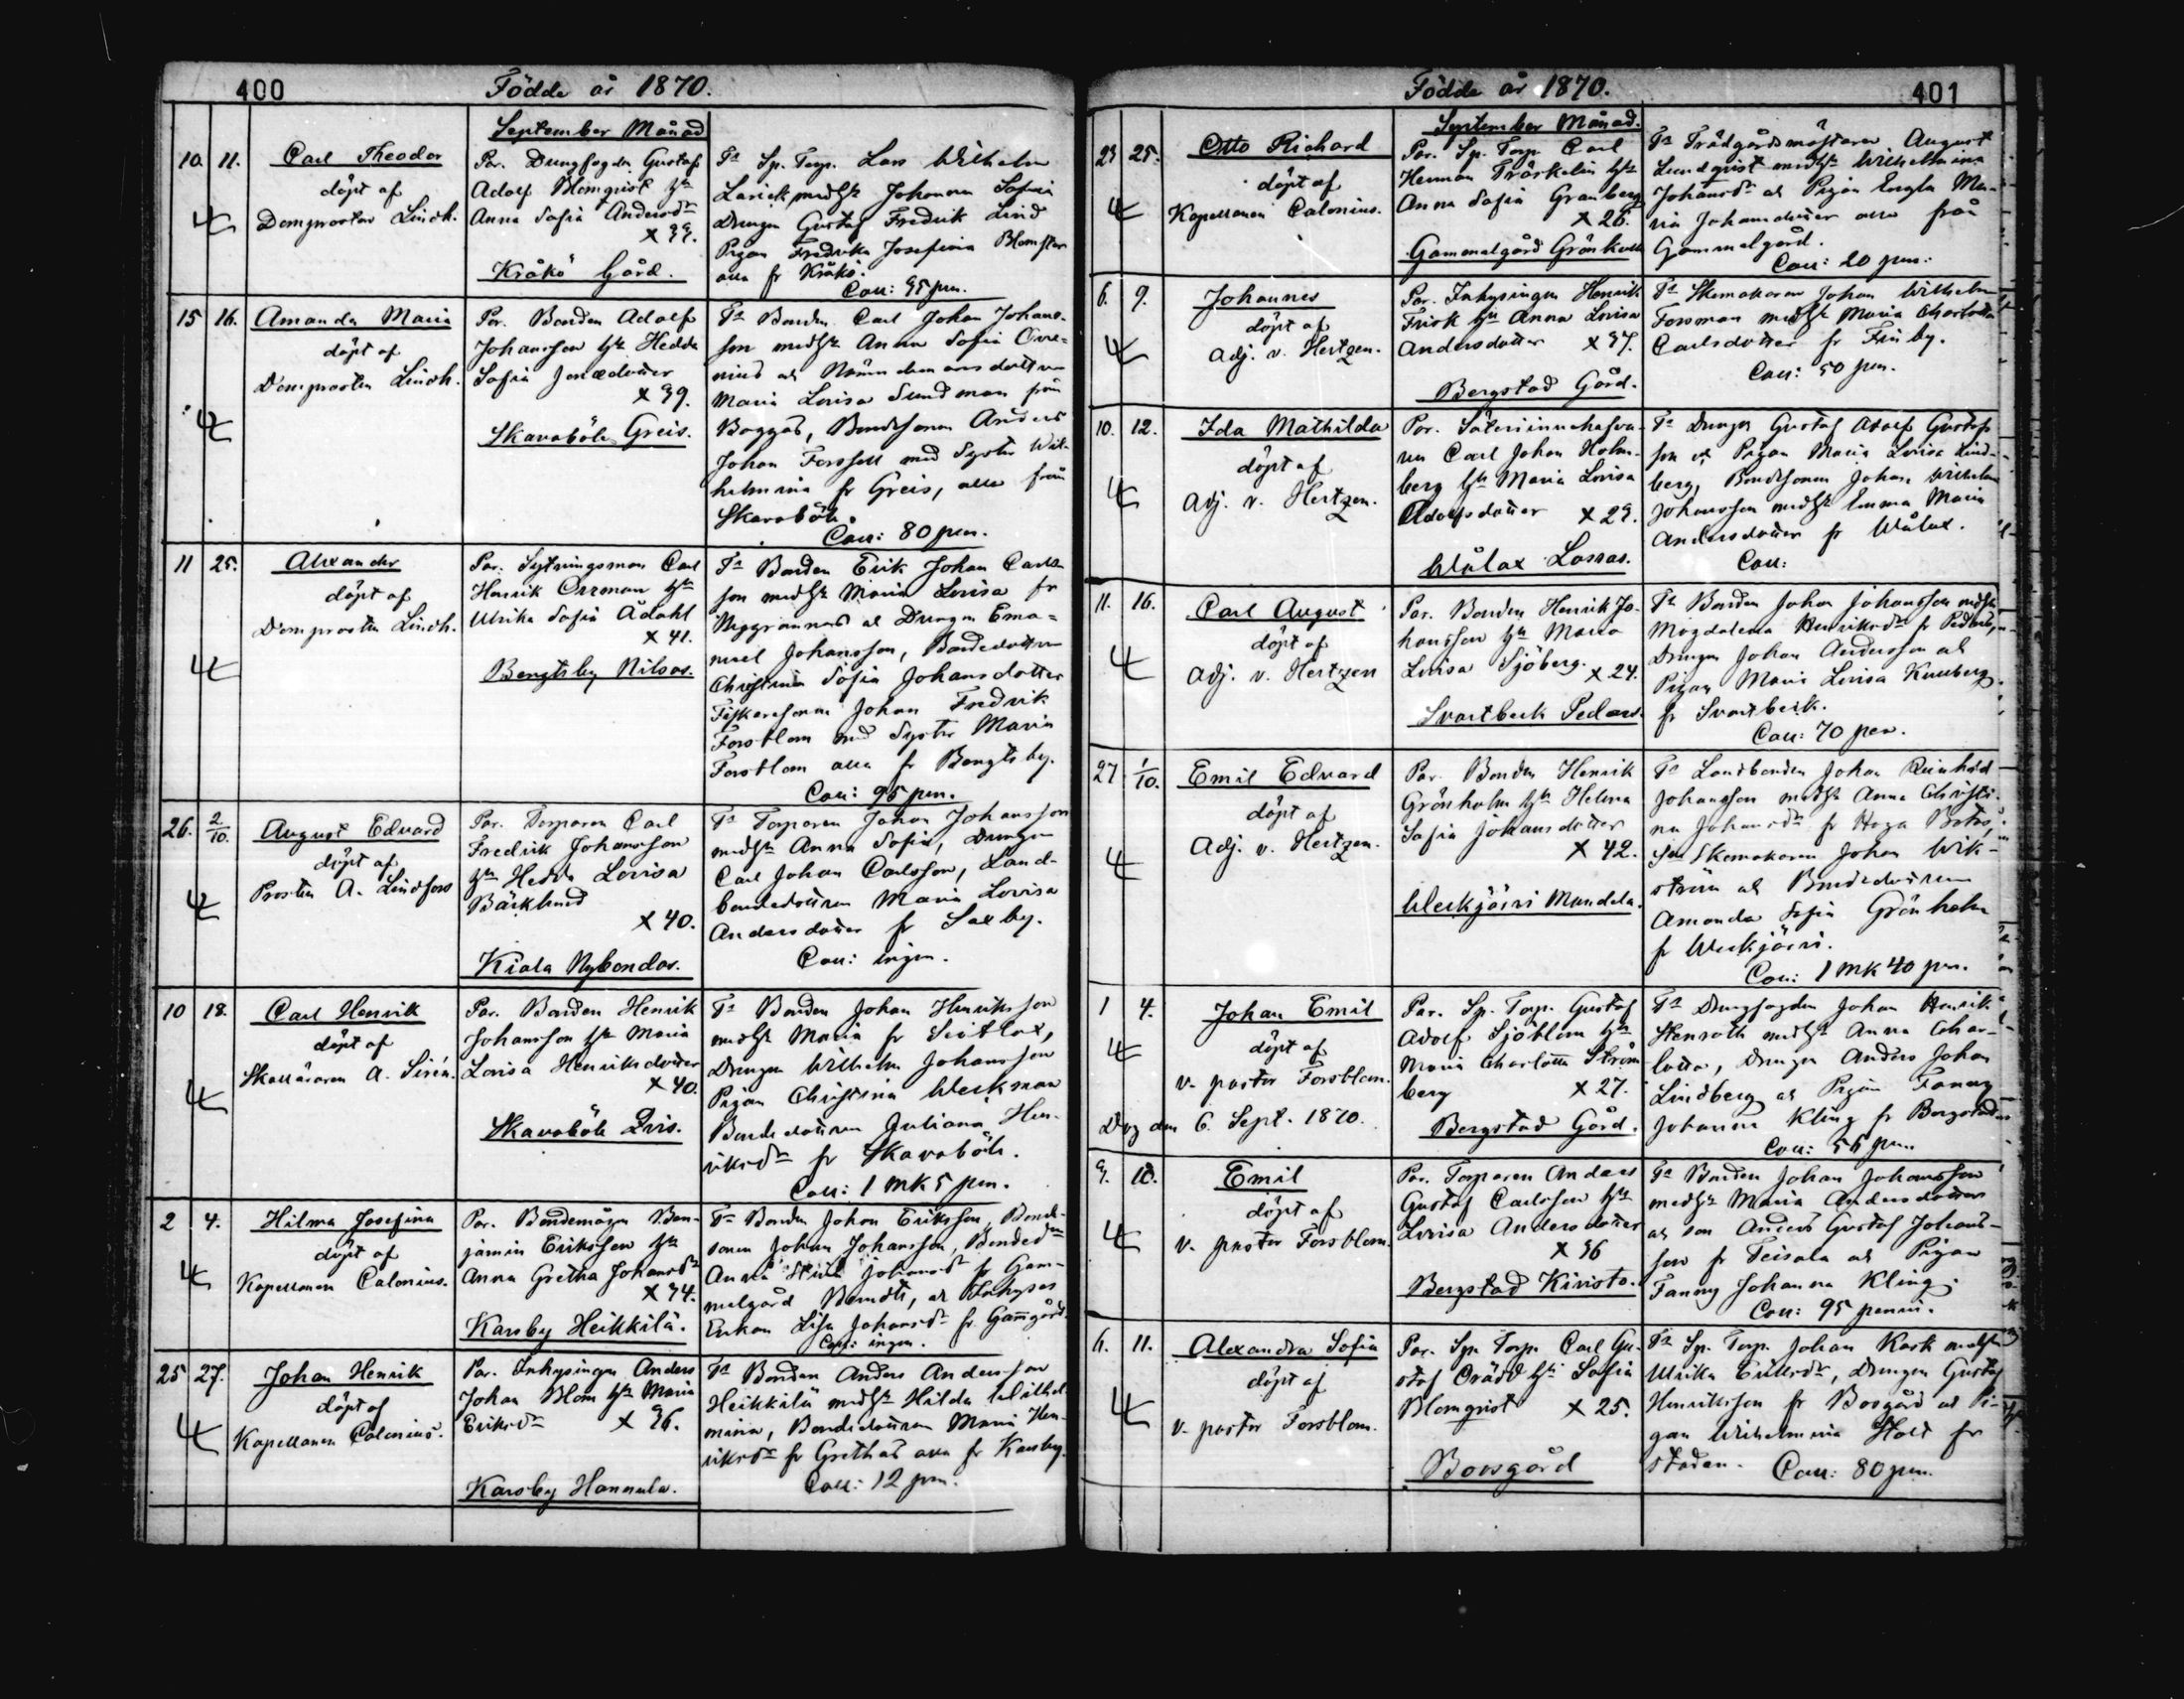 400
Födde år 1870.
September Månad
10. 11. Carl Theodor
döpt af
Domprosten Lindh.
Par. Drengfogden Gustaf
Adolf Blomqvist hu
Anna Sofia Andersdr
x 33.
Kråkö Gård.
Ts Sp. Torp. Lars Wilhelm
Larick medh Johanna Sofia
Drengen Gustaf Fredrik Lind
Pigan Fredrika Josefina Blomster
alla fr Kråkö.
Coll: 35 pen.
15 16. Amanda Maria
döpt af
Domprosten Lindh.
Par. Bonden Adolf
Johansson hu Hedda
Sofia Jonædotter
x 39.
Skavaböle Greis.
Ts Bonden Carl Johan Johans-
son medh Anna Sofia
och Nämndemansdottren
Maria Lovisa Sundman från
Boggas, Bondsonen Anders
Johan Forssell med Syster Wil-
helmina fr Greis, alla från
Skavaböle
Coll: 80 pen.
11 25. Alexander
döpt af
Domprosten Lindh.
Par. Sytningsman Carl
Henrik hu
Ulrika Sofia Ådahl
x 41.
Bengtsby Nilsas.
Ts Bonden Erik Johan Carls
son medh Maria Lovisa fr
Nyggrannas och Drengen Ema-
nuel Johansson, Bondedottren
Christina Sofia Johansdotter
Fiskaresonen Johan Fredrik
Forsblom med Syster Maria
Forsblom alla fr Bengtsby.
Coll: 95 pen.
26. 2/10. August Edvard
döpt af
Prosten A. Lindfors
Par. Torparen Carl
Fredrik Johansson
hu Hedda Lovisa
Bäcklund
x 40.
Kiala Nybondas.
Ts Torparen Johan Johansson
medh Anna Sofia, Drengen
Carl Johan Carlsson, Land-
bondedottren Maria Lovisa
Andersdotter fr Saxby.
Coll: ingen.
10 18. Carl Henrik
döpt af
Skolläraren A. Sirén.
Par. Bonden Henrik
Johansson hu Maria
Lovisa Henriksdotter
x 40.
Skavaböle Qvis.
Ts Bonden Johan Henriksson
medh Maria fr Seitlax,
Drengen Wilhelm Johansson
Pigan Christina Weckman
Bondedottren Juliana Hen-
riksdr fr Skavaböle.
Coll: 1 mk 5 pen.
2 4. Hilma Josefina
döpt af
Kapellanen Calonius.
Par. Bondemågen Ben-
jamin Eriksson hu
Anna Gretha Johansdr
x 34.
Karsby Heikkilä.
Ts Bonden Johan Eriksson, Bonde-
sonen Johan Johansson, Bondedn
Anna Johansdr fr Gam-
melgård Berndts, och Inhyses
Enkan Lisa Johansdr fr Gamgård.
Coll: ingen.
25 27. Johan Henrik
döpt af
Kapellanen Calonius.
Par. Inhysingen Anders
Johan Blom hu Maria
Eriksdr x 36.
Karsby Hannula.
Ts Bonden Anders Andersson
Heikkilä medh Hilda Wilhel-
mina, Bondedottren Maria Hen-
riksdr fr Grethas alla fr Karsby.
Coll: 12 pen.
Födde år 1870.
401
September Månad.
23 25. Otto Richard
döpt af
Kapellanen Calonius.
Par. Sp. Torp. Carl
Herman Träskelin hu
Anna Sofia Granberg
x 26.
Gammelgård Grönkulla
Ts Trädgårdsmästaren August
Lundqvist medh Wilhelmina
Johansdr och Pigan Engla Ma-
ria Johansdotter alla från
Gammelgård.
Coll: 20 pen.
6. 9. Johannes
döpt af
Adj. v. Hertzen.
Par. Inhysingen Henrik
Frisk hu Anna Lovisa
Andersdotter x 37.
Bergstad Gård.
Ts Skomakaren Johan Wilhelm
Forsman medh Maria Charlotta
Carlsdotter fr Finby.
Coll: 50 pen.
10. 12. Ida Mathilda
döpt af
Adj. v. Hertzen.
Par. Säteriinnehafva-
ren Carl Johan Holm-
berg hu Maria Lovisa
Adolfsdotter x 29.
Wålax Lassas.
Ts Drengen Gustaf Adolf Gustafs
son och Pigan Maria Lovisa Lind-
berg, Bondsonen Johan Wilhelm
Johansson medh Emma Maria
Andersdotter fr Wålax.
Coll:
11. 16. Carl August
döpt af
Adj. v. Hertzen
Par. Bonden Henrik Jo-
hansson hu Maria
Lovisa Sjöberg. x 24.
Svartbeck Pedars.
Ts Bonden Johan Johansson medh
Magdalena Henriksdr fr Pedars,
Drengen Johan Andersson och
Pigan Maria Lovisa Kullberg
fr Svartbeck.
Coll: 70 pen.
27 1/10. Emil Edvard
döpt af
Adj. v. Hertzen.
Par. Bonden Henrik
Grönholm hu Helena
Sofia Johansdotter
x 42.
Weckjärvi Mandela.
Ts Landbonden Johan Reinhold
Johansson medh Anna Christi-
na Johansdr fr Haga
Skomakaren Johan Wik-
ström och Bondedottren
Amanda Sofia Grönholm
fr Weckjärvi.
Coll: 1 mk 40 pen.
1 4. Johan Emil
döpt af
v. pastor Forsblom.
Dog den 6. Sept. 1870.
Par. Sp. Torp. Gustaf
Adolf Sjöblom hu
Maria Charlotta Ström
berg x 27.
Bergstad Gård.
Ts Drengfogden Johan Henrik
Stenroth medh Anna Char-
lotta, Drengen Anders Johan
Lindberg och Pigan Fanny
Johanna Kling fr Bergstad
Coll: 56 pen.
9. 10. Emil
döpt af
v. pastor Forsblom.
Par. Torparen Anders
Gustaf Carlsson hu
Lovisa Andersdotter
x 36
Bergstad Kinisto.
Ts Bonden Johan Johansson
medh Maria Andersdotter
och son Anders Gustaf Johans-
son fr Teisala och Pigan
Fanny Johanna Kling.
Coll: 95 penni.
6. 11. Alexandra Sofia
döpt af
v. pastor Forsblom.
Par. Sp. Torp. Carl Gu-
staf Orädd hu Sofia
Blomqvist x 25.
Bosgård
Ts Sp. Torp. Johan Rask medh
Ulrika Eriksdr, Drengen Gustaf
Henriksson fr Bosgård och Pi-
gan Wilhelmina Holt fr
staden. Coll: 80 pen.